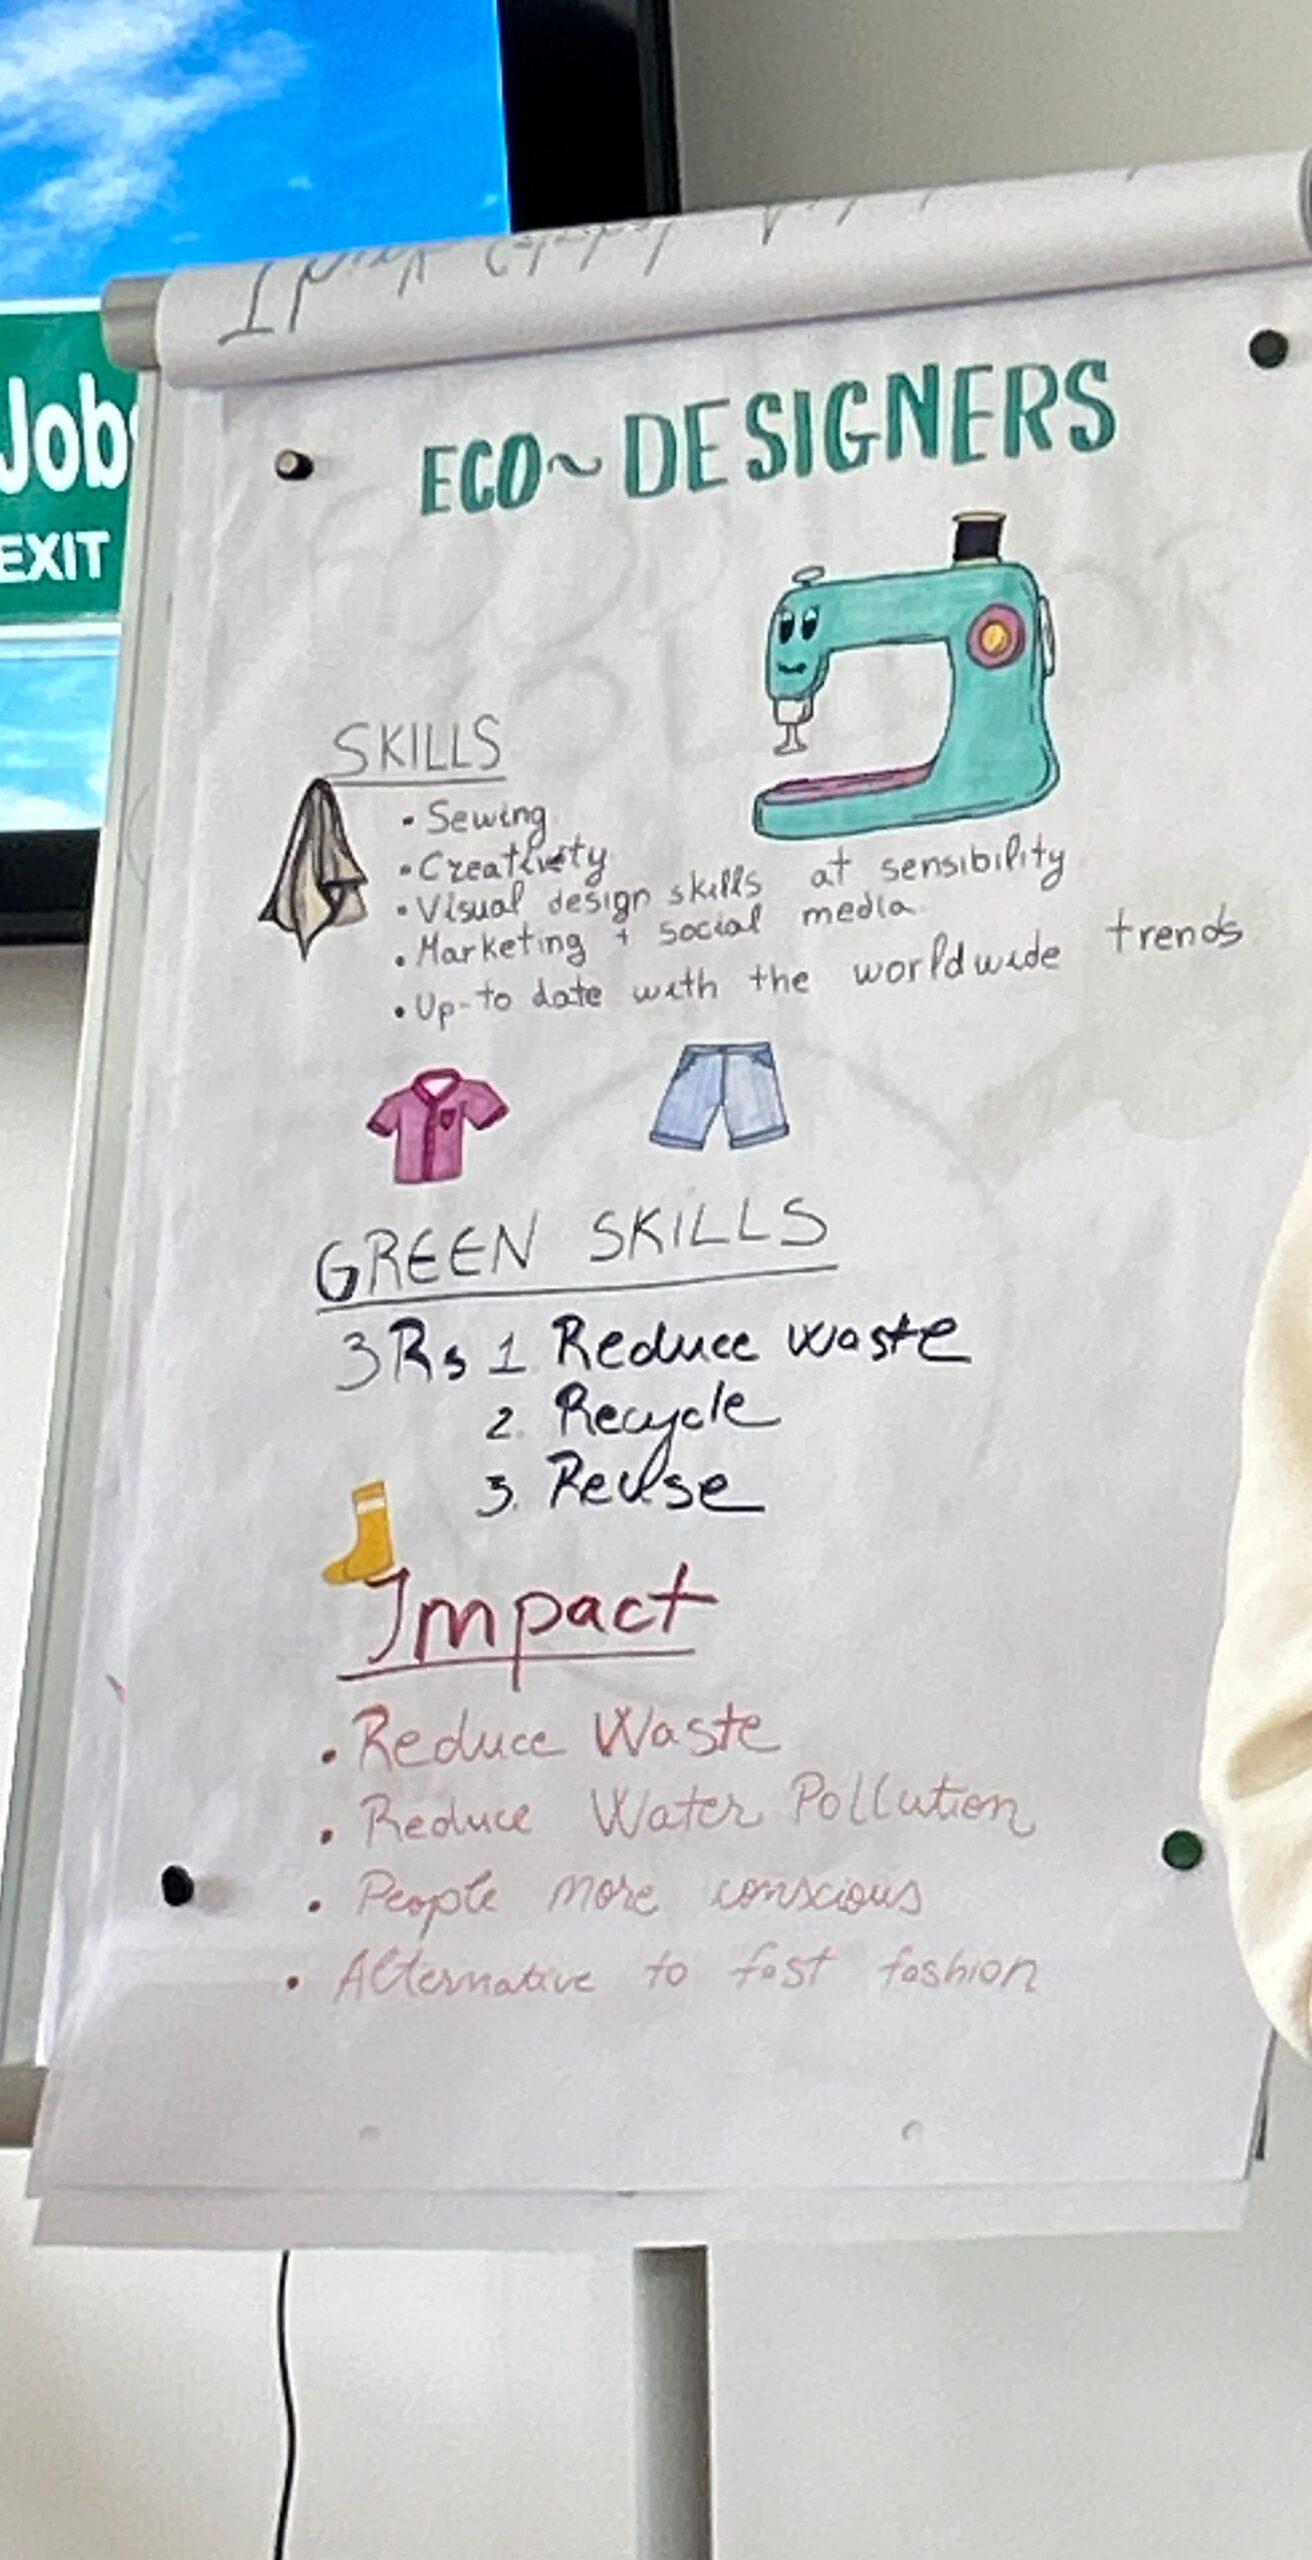 Job
EXIT
ECO~DESIGNERS
SKILLS
• Sewing
• Creativity
• Visual design skills at sensibility
• Marketing + social media
• Up-to date with the worldwide trends
GREEN SKILLS
3Rs 1 Reduce waste
2. Recycle
3. Reuse
Impact
• Reduce Waste
• Reduce Water Pollution
• People more conscious
• Alternative to fast fashion